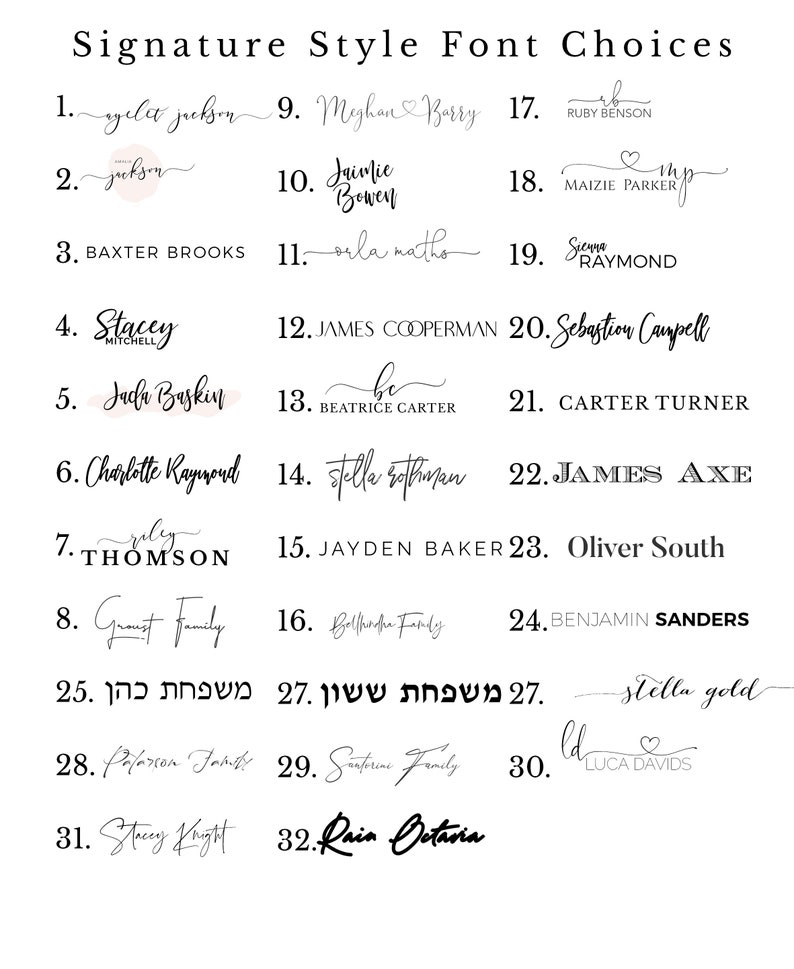 Signature Style Font Choices
1. ayelet jackson
2. AMALIA
jackson
3. BAXTER BROOKS
4. Stacey
MITCHELL
5. Jada Baskin
6. Charlotte Raymond
7. riley
THOMSON
8. Groust Family
25. משפחת כהן
28. Patarson Family
31. Stacey Knight
9. Meghan♡Barry
10. Jaimie
Bowen
11. orla maths
12. JAMES COOPERMAN
13. bc
BEATRICE CARTER
14. stella rothman
15. JAYDEN BAKER
16. Bellhindha Family
27. משפחת ששון
29. Santorini Family
32. Rain Octavia
17. rb
RUBY BENSON
18. mp
MAIZIE PARKER
19. Sienna
RAYMOND
20. Sebastian Campell
21. CARTER TURNER
22. JAMES AXE
23. Oliver South
24. BENJAMIN SANDERS
27. stella gold
30. ld
LUCA DAVIDS